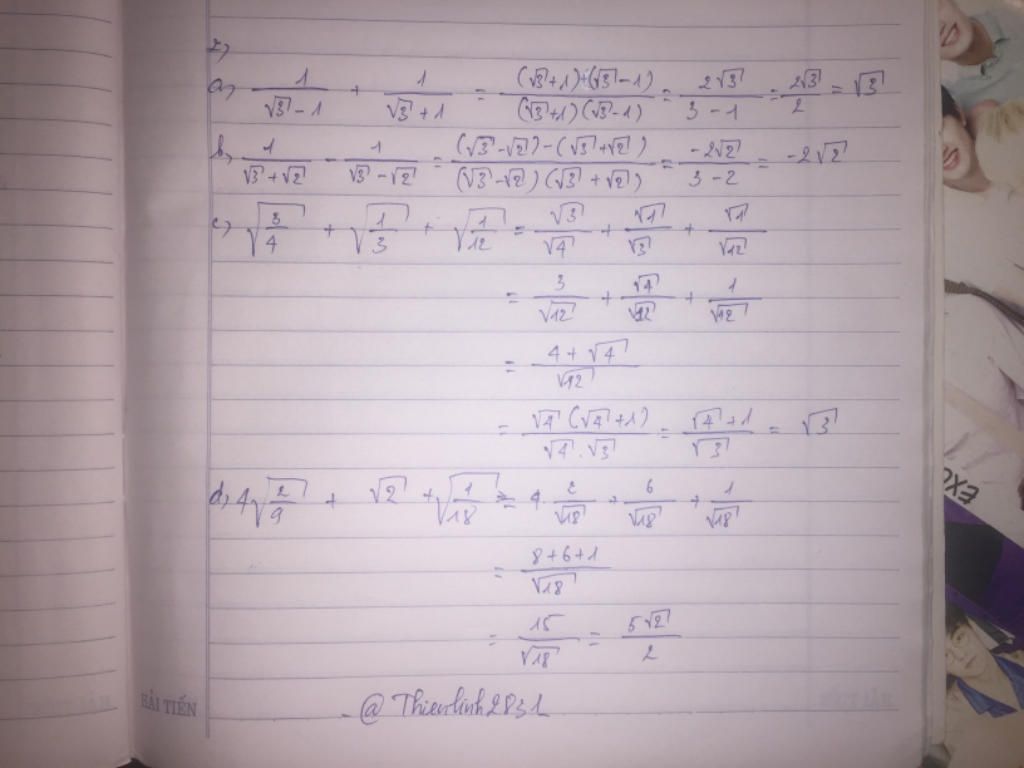 7,
a, 1/(√3 - 1) + 1/(√3 + 1) = ((√3 + 1) + (√3 - 1))/((√3 + 1)(√3 - 1)) = 2√3/(3 - 1) = 2√3/2 = √3
b, 1/(√3 + √2) - 1/(√3 - √2) = ((√3 - √2) - (√3 + √2))/((√3 - √2)(√3 + √2)) = -2√2/(3 - 2) = -2√2
c, √(3/4) + √(1/3) + √(1/12) = √3/√4 + √1/√3 + √1/√12
= 3/√12 + √4/√12 + 1/√12
= (4 + √4)/√12
= √4(√4 + 1)/(√4 . √3) = (√4 + 1)/√3 = √3
d, 4√(2/9) + √2 + √(1/18) = 4 . 2/√18 + 6/√18 + 1/√18
= (8 + 6 + 1)/√18
= 15/√18 = 5√2/2
@ Thienlinh2831
HẢI TIẾN
EXO